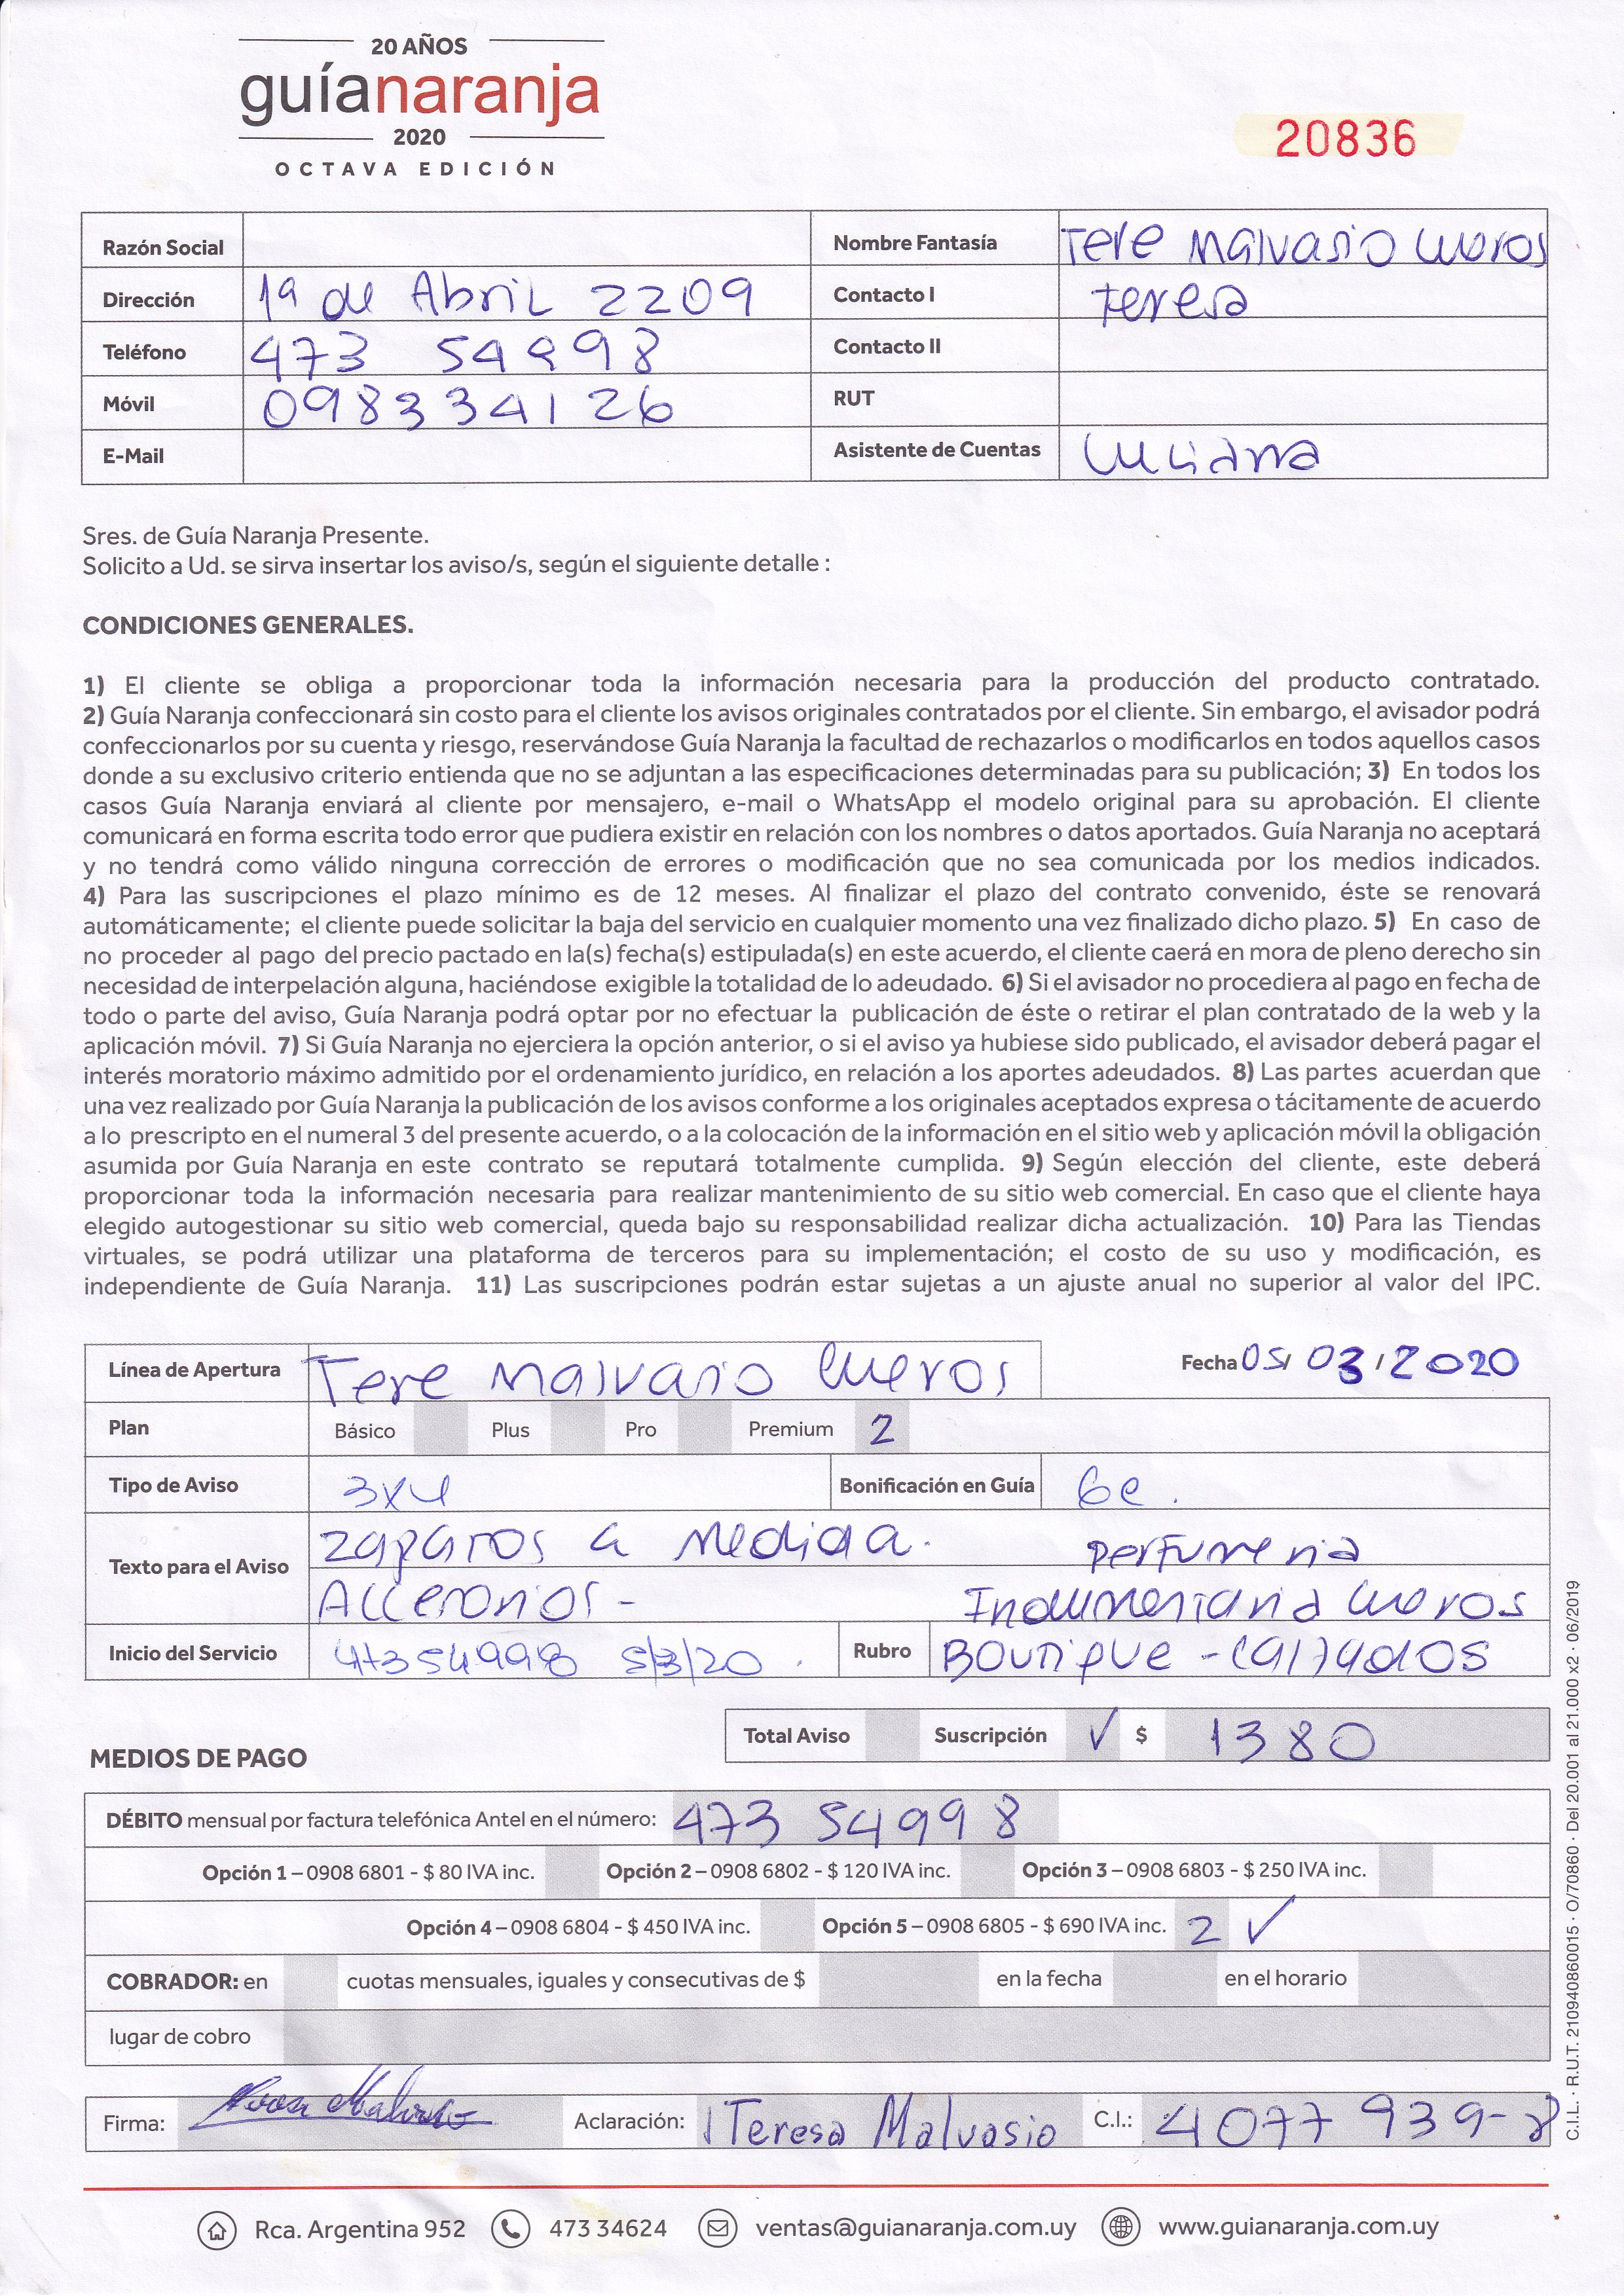 20 AÑOS
guíanaranja
2020
OCTAVA EDICIÓN
20836
Razón Social
Nombre Fantasía Tere Malvasio Cueros
Dirección 1º de Abril 2209
Contacto I Teresa
Teléfono 473 54998
Contacto II
Móvil 098334126
RUT
E-Mail
Asistente de Cuentas Luciana
Sres. de Guía Naranja Presente.
Solicito a Ud. se sirva insertar los aviso/s, según el siguiente detalle :
CONDICIONES GENERALES.
1) El cliente se obliga a proporcionar toda la información necesaria para la producción del producto contratado.
2) Guía Naranja confeccionará sin costo para el cliente los avisos originales contratados por el cliente. Sin embargo, el avisador podrá
confeccionarlos por su cuenta y riesgo, reservándose Guía Naranja la facultad de rechazarlos o modificarlos en todos aquellos casos
donde a su exclusivo criterio entienda que no se adjuntan a las especificaciones determinadas para su publicación; 3) En todos los
casos Guía Naranja enviará al cliente por mensajero, e-mail o WhatsApp el modelo original para su aprobación. El cliente
comunicará en forma escrita todo error que pudiera existir en relación con los nombres o datos aportados. Guía Naranja no aceptará
y no tendrá como válido ninguna corrección de errores o modificación que no sea comunicada por los medios indicados.
4) Para las suscripciones el plazo mínimo es de 12 meses. Al finalizar el plazo del contrato convenido, éste se renovará
automáticamente; el cliente puede solicitar la baja del servicio en cualquier momento una vez finalizado dicho plazo. 5) En caso de
no proceder al pago del precio pactado en la(s) fecha(s) estipulada(s) en este acuerdo, el cliente caerá en mora de pleno derecho sin
necesidad de interpelación alguna, haciéndose exigible la totalidad de lo adeudado. 6) Si el avisador no procediera al pago en fecha de
todo o parte del aviso, Guía Naranja podrá optar por no efectuar la publicación de éste o retirar el plan contratado de la web y la
aplicación móvil. 7) Si Guía Naranja no ejerciera la opción anterior, o si el aviso ya hubiese sido publicado, el avisador deberá pagar el
interés moratorio máximo admitido por el ordenamiento jurídico, en relación a los aportes adeudados. 8) Las partes acuerdan que
una vez realizado por Guía Naranja la publicación de los avisos conforme a los originales aceptados expresa o tácitamente de acuerdo
a lo prescripto en el numeral 3 del presente acuerdo, o a la colocación de la información en el sitio web y aplicación móvil la obligación
asumida por Guía Naranja en este contrato se reputará totalmente cumplida. 9) Según elección del cliente, este deberá
proporcionar toda la información necesaria para realizar mantenimiento de su sitio web comercial. En caso que el cliente haya
elegido autogestionar su sitio web comercial, queda bajo su responsabilidad realizar dicha actualización. 10) Para las Tiendas
virtuales, se podrá utilizar una plataforma de terceros para su implementación; el costo de su uso y modificación, es
independiente de Guía Naranja. 11) Las suscripciones podrán estar sujetas a un ajuste anual no superior al valor del IPC.
Línea de Apertura Tere Malvasio Cueros
Fecha 05/ 03 / 2020
Plan Básico Plus Pro Premium 2
Tipo de Aviso 3x4 Bonificación en Guía 6e.
Texto para el Aviso
Zapatos a Medida. Perfumeria
Accesorios - Indumentaria Cueros
Inicio del Servicio 47354998 5/3/20 . Rubro Boutique - Calzados
Total Aviso Suscripción ✓ $ 1380
MEDIOS DE PAGO
DÉBITO mensual por factura telefónica Antel en el número: 473 54998
Opción 1 – 0908 6801 - $ 80 IVA inc. Opción 2 – 0908 6802 - $ 120 IVA inc. Opción 3 – 0908 6803 - $ 250 IVA inc.
Opción 4 – 0908 6804 - $ 450 IVA inc. Opción 5 – 0908 6805 - $ 690 IVA inc. 2 ✓
COBRADOR: en cuotas mensuales, iguales y consecutivas de $ en la fecha en el horario
lugar de cobro
Firma: Aclaración: Teresa Malvasio C.I.: 4077 939-8
C.I.L. · R.U.T. 210940860015 · O/70860 · Del 20.001 al 21.000 x2 · 06/2019
Rca. Argentina 952 473 34624 ventas@guianaranja.com.uy www.guianaranja.com.uy